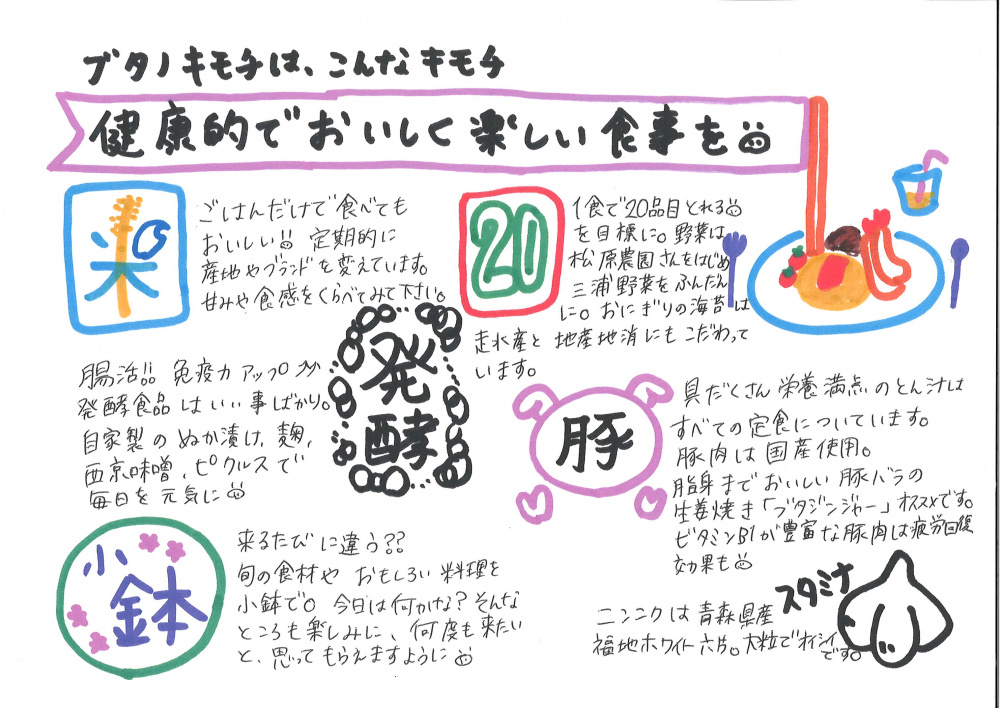 ブタノキモチは、こんなキモチ
健康的でおいしく楽しい食事を
米
ごはんだけで食べても
おいしい!! 定期的に
産地やブランドを変えています。
甘みや食感をくらべてみて下さい。
20
1食で20品目とれる
を目標に。野菜は
松原農園さんをはじめ
三浦野菜をふんだん
に。おにぎりの海苔は
走水産と地産地消にもこだわって
います。
腸活!! 免疫力アップ
発酵食品はいい事ばかり。
自家製のぬか漬け、麹、
西京味噌、ピクルスで
毎日を元気に
発
酵
豚
具だくさん栄養満点のとん汁は
すべての定食についています。
豚肉は国産使用。
脂身までおいしい豚バラの
生姜焼き「ブタジンジャー」オススメです。
ビタミンB1が豊富な豚肉は疲労回復
効果も
小
鉢
来るたびに違う??
旬の食材やおもしろい料理を
小鉢で。今日は何かな?そんな
ところも楽しみに、何度も来たい
と、思ってもらえますように
スタミナ
ニンニクは青森県産
福地ホワイト六片。大粒でオイシイ
です。